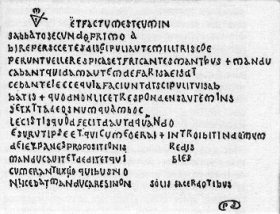 ETFACTUMESTEUMIN
SABBATOSECUNDOPRIMO À
BIREPERSCCETESDISGIPULIAUTEMILLIRISCOE
PERUNTVELLERESPICASETFRICANTESMANTBUS + MANDU
CABANTQUIDAMAUTEMDEFARISAEISDT
CEBANTELECCEQUIAFACIUNTDISCIPULITVISAB
BATIS + QUODNONLICETRESPONDENSAUTEMINS
SETXTTADEOSNUMQUAMBOC
LECISTISQUODFECITDAUTDQUANDO
ESURUTIPSEETQUICUMEOERAT + INTROIBITINDOMUM
DEIETPANESPROPOSITIONIS REDIS
MANDUCAUITETDEDITETQUI BLES
CUMERANTUXIIQUIBUSNO
NLICEBATMANDUCARESINON SOLIS SACERDOTIBUS